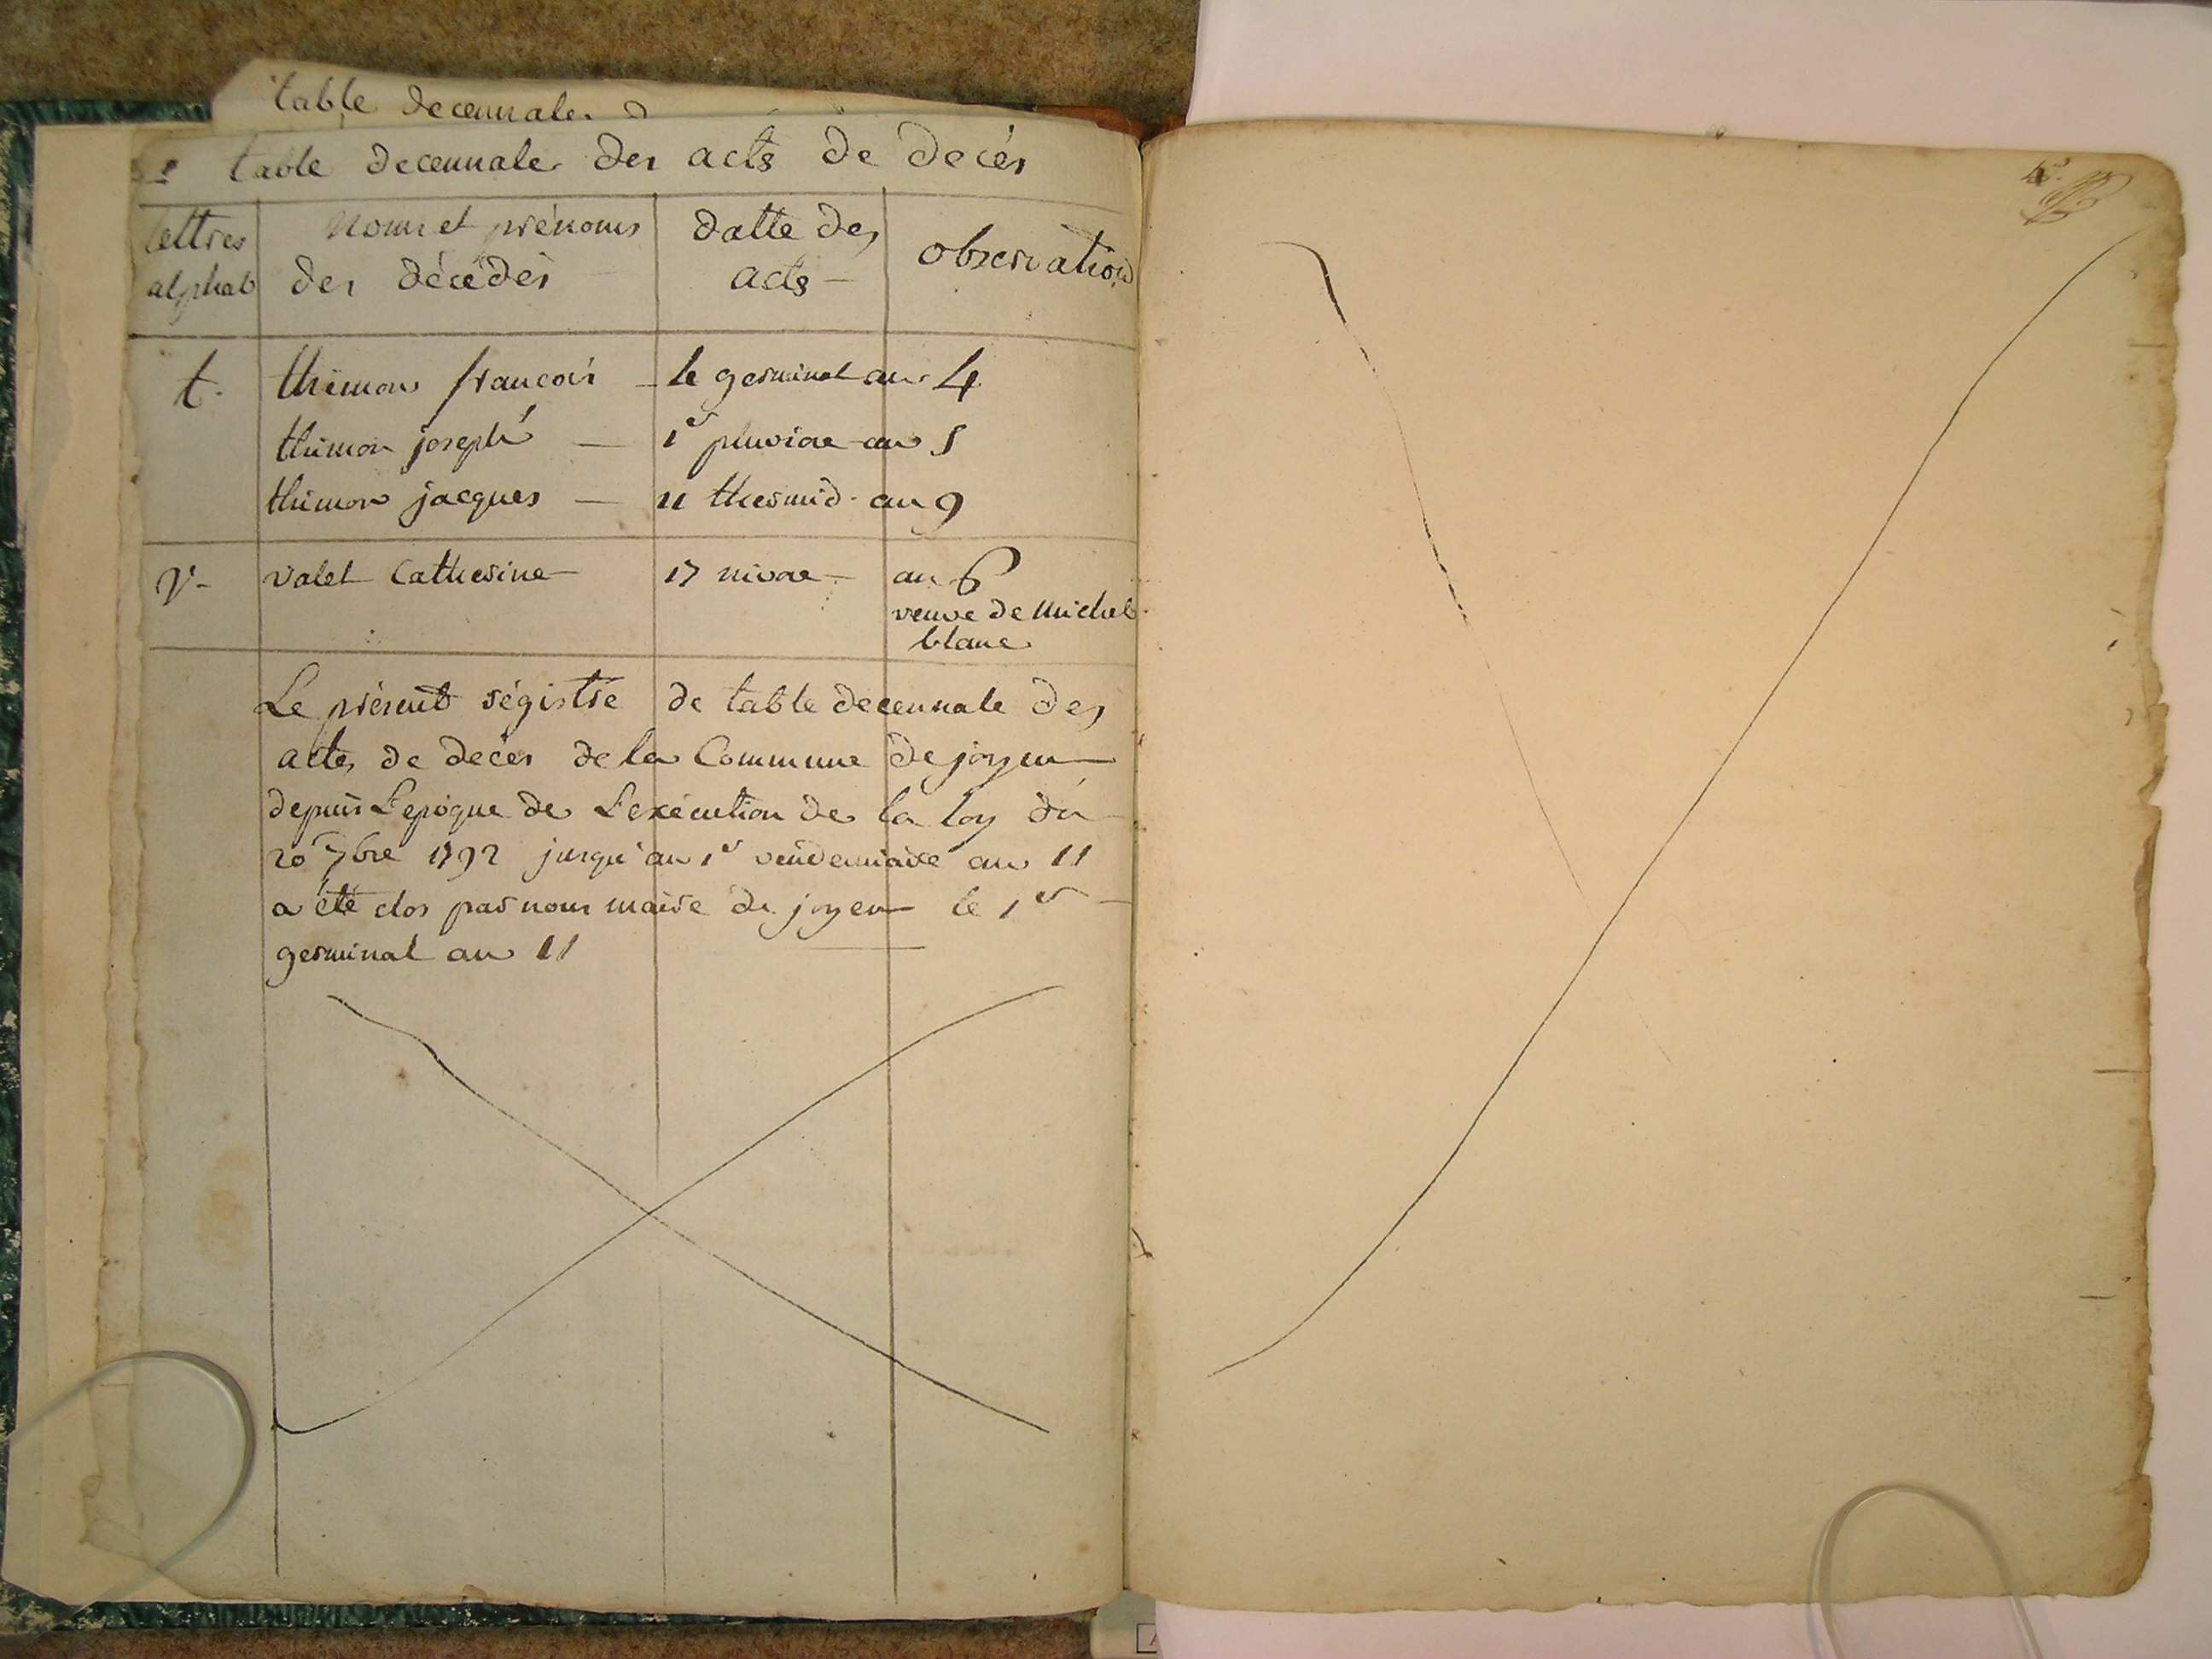 table decennale d
table decennale des acts de décès
lettres alphab
noms et prénoms des décédés
datte des acts
observation
t. thimon françois le germinal an 4
thimon joseph 1er pluviôe an 5
thimon jacques 11 thermid. an 9
v. valet Catherine 17 nivoe an 6
veuve de michel
blanc
Le présent régistre de table decennale des
actes de decès de la Commune de joyeu
depuis L'epoque de L'exécution de la loy du
20 7bre 1792 jusqu'au 1er vendemiaire an 11
a été clos par nous maire de joyeu le 1er
germinal an 11